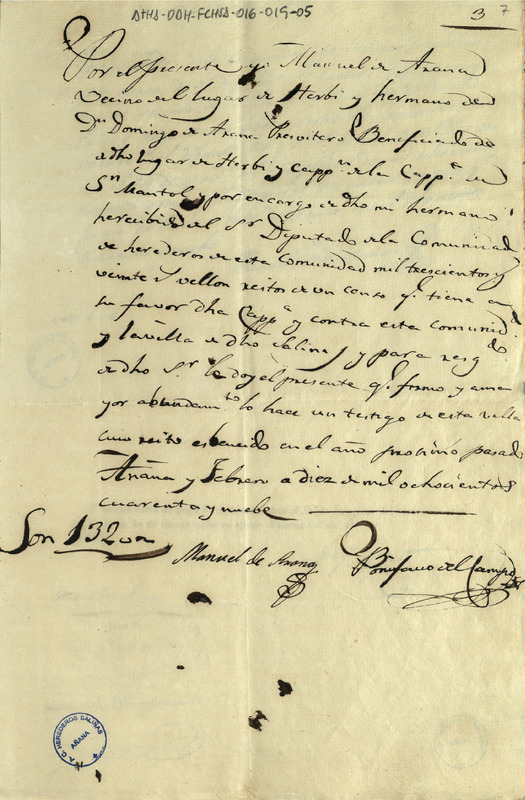 ATHA-DDH-FCHSA-016-019-05
3 7
Por el presente yo Manuel de Arana
Vecino del lugar de Herbi y hermano de
Dn Domingo de Arana Presvitero Beneficiado de
dho lugar de Herbi y Cappn de la Cappa de
Sn y por encargo de dho mi hermano
he recibido del Sr Diputado de la Comunidad
de herederos de esta Comunidad mil trescientos y
veinte vellon reitos de un censo qe tiene en
su favor dha Cappa y contra esta comunidd
y la villa de dho Salinas y para resgdo
de dho Sr le doy el presente qe firmo y a ma
yor abundamto lo hace un testigo de esta villa
cuio reito es bencido en el año procsimo pasado
Añana y Febrero a diez de mil ochocientos
cuarenta y nuebe
Son 132 on
Manuel de Arana
Bonifacio del Campo
A. C. HEREDEROS SALINAS
AÑANA